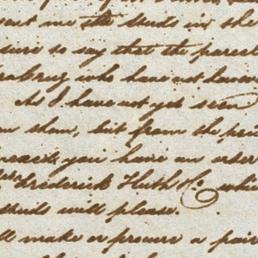 sent me the studs in the
sure so say that the parcel
who have not
As I have not yet seen
them, but from the
you have an order
Frederick Huth & Co. whi
studs will please.
ll make or procure a pair